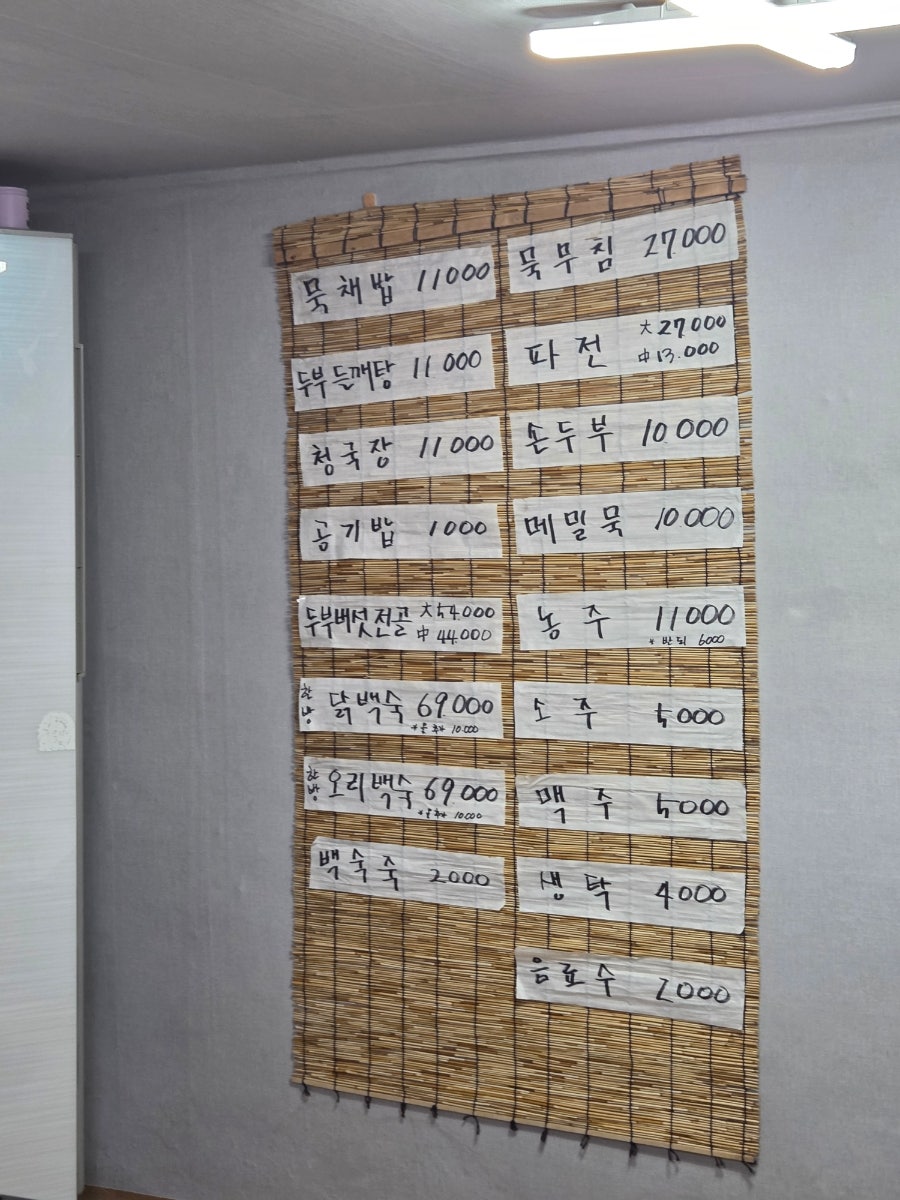 묵채밥 11000
두부들깨탕 11000
청국장 11000
공기밥 1000
두부버섯전골 大54.000
中 44.000
한방 닭백숙 69.000
*옻추* 10.000
한방 오리백숙 69000
*옻추* 10.000
백숙죽 2000
묵무침 27.000
파전 大27000
中13.000
손두부 10000
메밀묵 10000
농주 11000
* 반되 6000
소주 5000
맥주 5000
생탁 4000
음료수 2000